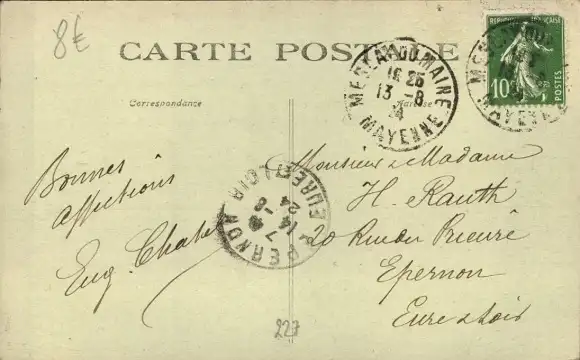 8€
CARTE POSTALE
RÉPUBLIQUE FRANÇAISE
10c
POSTES
MESLAY-DU-MAINE
16 25
13 -8
24
MAYENNE
Correspondance
Adresse
Bonnes
affections
Eug. Chabe
EPERNON
EURE ET LOIR
7
14 -8
24
Monsieur & Madame
H. Rauth
20 Rue du Prieuré
Epernon
Eure & Loir
227